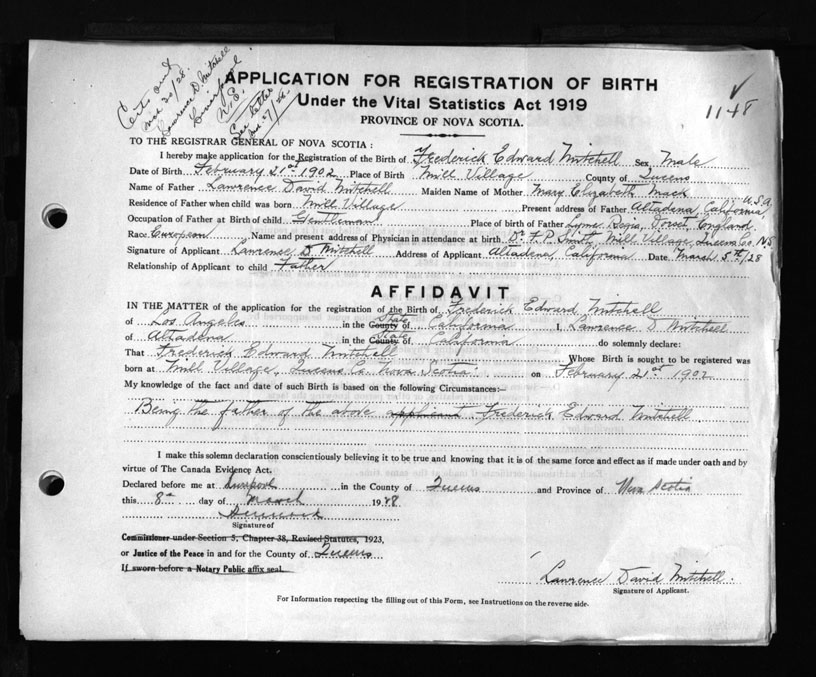 Certs and
Mch 20/28.
Lawrence D. Mitchell
Liverpool
N.S.
See Letter
APPLICATION FOR REGISTRATION OF BIRTH
Under the Vital Statistics Act 1919
PROVINCE OF NOVA SCOTIA.
1148
TO THE REGISTRAR GENERAL OF NOVA SCOTIA:
I hereby make application for the Registration of the Birth of Frederick Edward Mitchell Sex Male
Date of Birth February 21st 1902 Place of Birth Mill Village County of Queens
Name of Father Lawrence David Mitchell Maiden Name of Mother Mary Elizabeth Mack
Residence of Father when child was born Mill Village Present address of Father Altadena, California, U.S.A.
Occupation of Father at Birth of child Gentleman Place of birth of Father Lyme Regis, Dorset, England.
Race European Name and present address of Physician in attendance at birth Dr. F. P. Smith, Mill Village, Queens Co. N.S
Signature of Applicant Lawrence D Mitchell Address of Applicant Altadena, California Date March 5th/28
Relationship of Applicant to child Father
AFFIDAVIT
IN THE MATTER of the application for the registration of the Birth of Frederick Edward Mitchell
of Los Angeles in the County of State California I, Lawrence D Mitchell
of Altadena in the County of State California do solemnly declare:
That Frederick Edward Mitchell Whose Birth is sought to be registered was
born at Mill Village, Queens Co. Nova Scotia on February 21st 1902
My knowledge of the fact and date of such Birth is based on the following Circumstances:
Being the father of the above applicant Frederick Edward Mitchell
I make this solemn declaration conscientiously believing it to be true and knowing that it is of the same force and effect as if made under oath and by
virtue of The Canada Evidence Act.
Declared before me at Liverpool in the County of Queens and Province of Nova Scotia
this 8th day of March 1928
Signature of
Commissioner under Section 5, Chapter 38, Revised Statutes, 1923,
or Justice of the Peace in and for the County of Queens
If sworn before a Notary Public affix seal.
Lawrence David Mitchell.
Signature of Applicant.
For Information respecting the filling out of this Form, see Instructions on the reverse side.